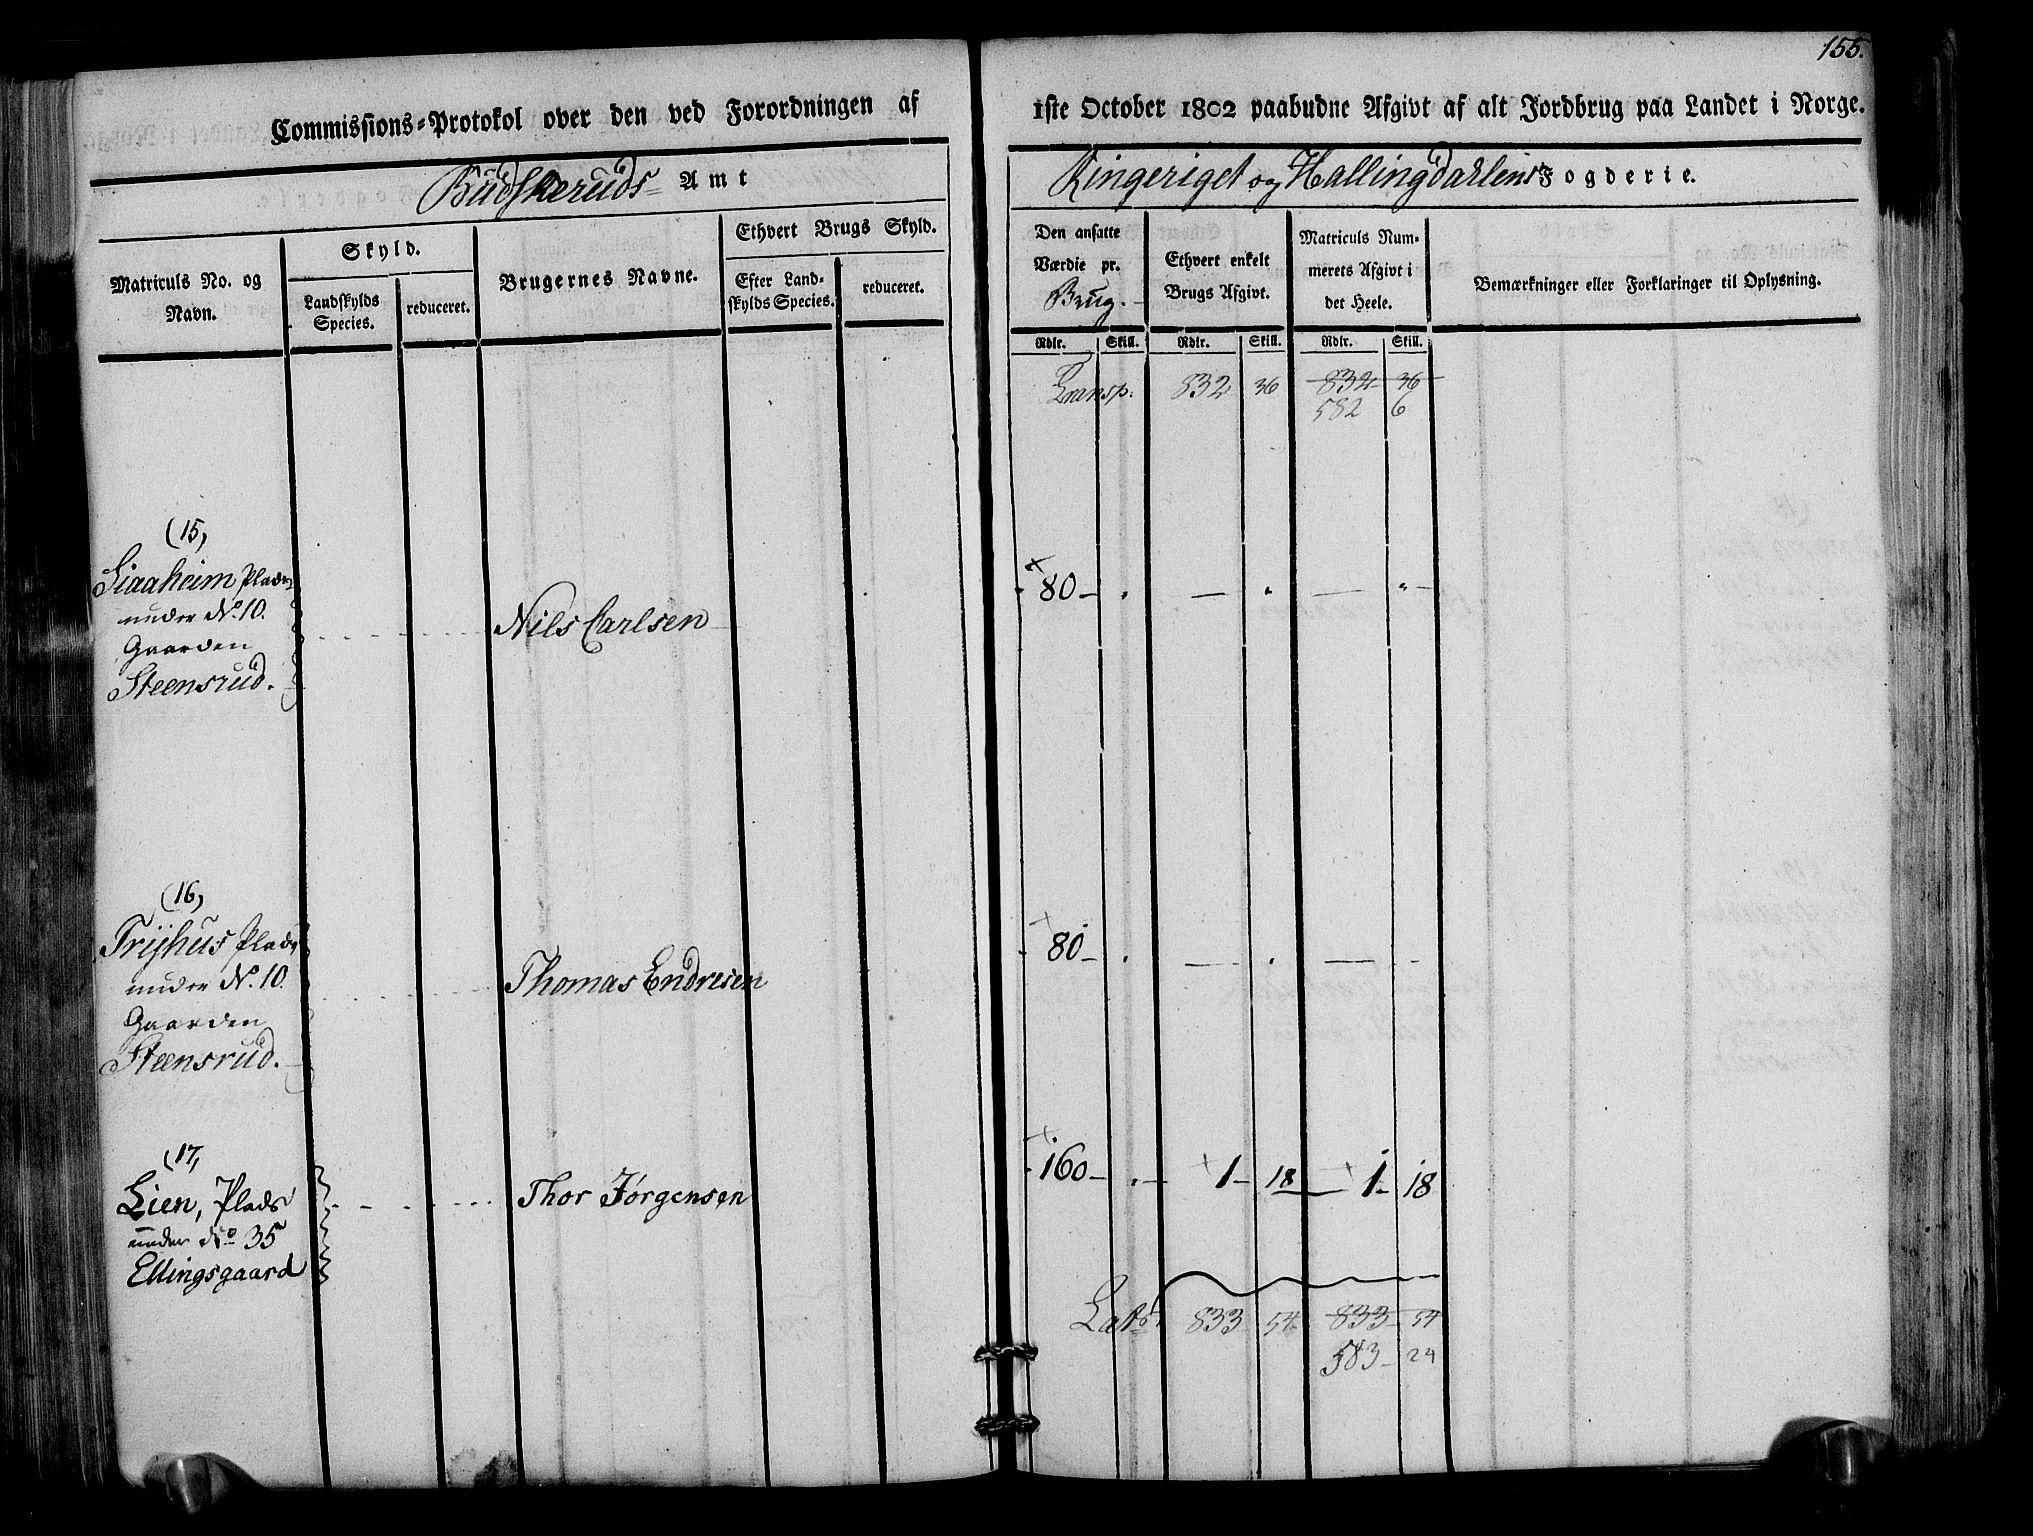 155.
Commissions-Protokol over den ved Forordningen af 1ste October 1802 paabudne Afgivt af alt Jordbrug paa Landet i Norge.
Budskeruds Amt
Ringeriget og Hallingdahlens Fogderie.
Matriculs No. og Navn.
Skyld.
Landskylds Species.
reduceret.
Brugernes Navne.
Ethvert Brugs Skyld.
Efter Landskylds Species.
reduceret.
Den ansatte Værdie pr. Brug.
Ethvert enkelt Brugs Afgivt.
Matriculs Nummerets Afgivt i det Heele.
Bemærkninger eller Forklaringer til Oplysning.
Rdlr. Skill. Rdlr. Skill. Rdlr. Skill.
Transp: 832 36 832 36
582 6
(15,
Siaaheim Plads
under No. 10.
Gaarden
Steensrud.
Nils Carlsen 80
(16,
Trijhus Plads
under No. 10
Gaarden
Steensrud.
Thomas Endresen 80
(17,
Lien, Plads
under No 35
Ellingsgaard
Thor Jørgensen 160 1 18 1 18
Lats 833 54 833 54
583 24